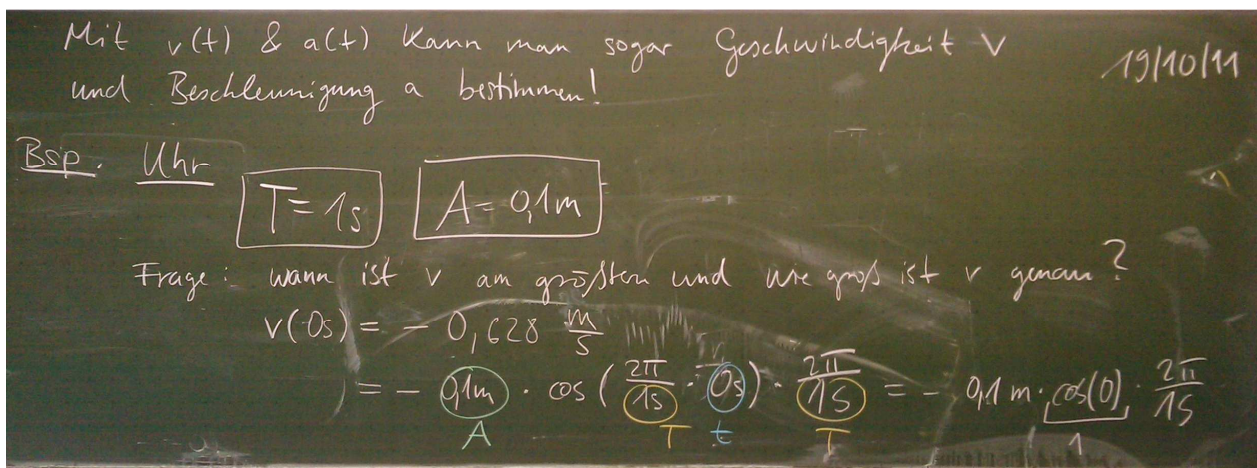 Mit v(t) & a(t) kann man sogar Geschwindigkeit v
19/10/11
und Beschleunigung a bestimmen!
Bsp. Uhr
T = 1s A = 0,1m
Frage: wann ist v am größten und wie groß ist v genau?
v(0s) = - 0,628 m/s
= - 0,1m · cos ( 2π/1s · 0s ) · 2π/1s = - 0,1 m · cos(0) · 2π/1s
A T t T 1